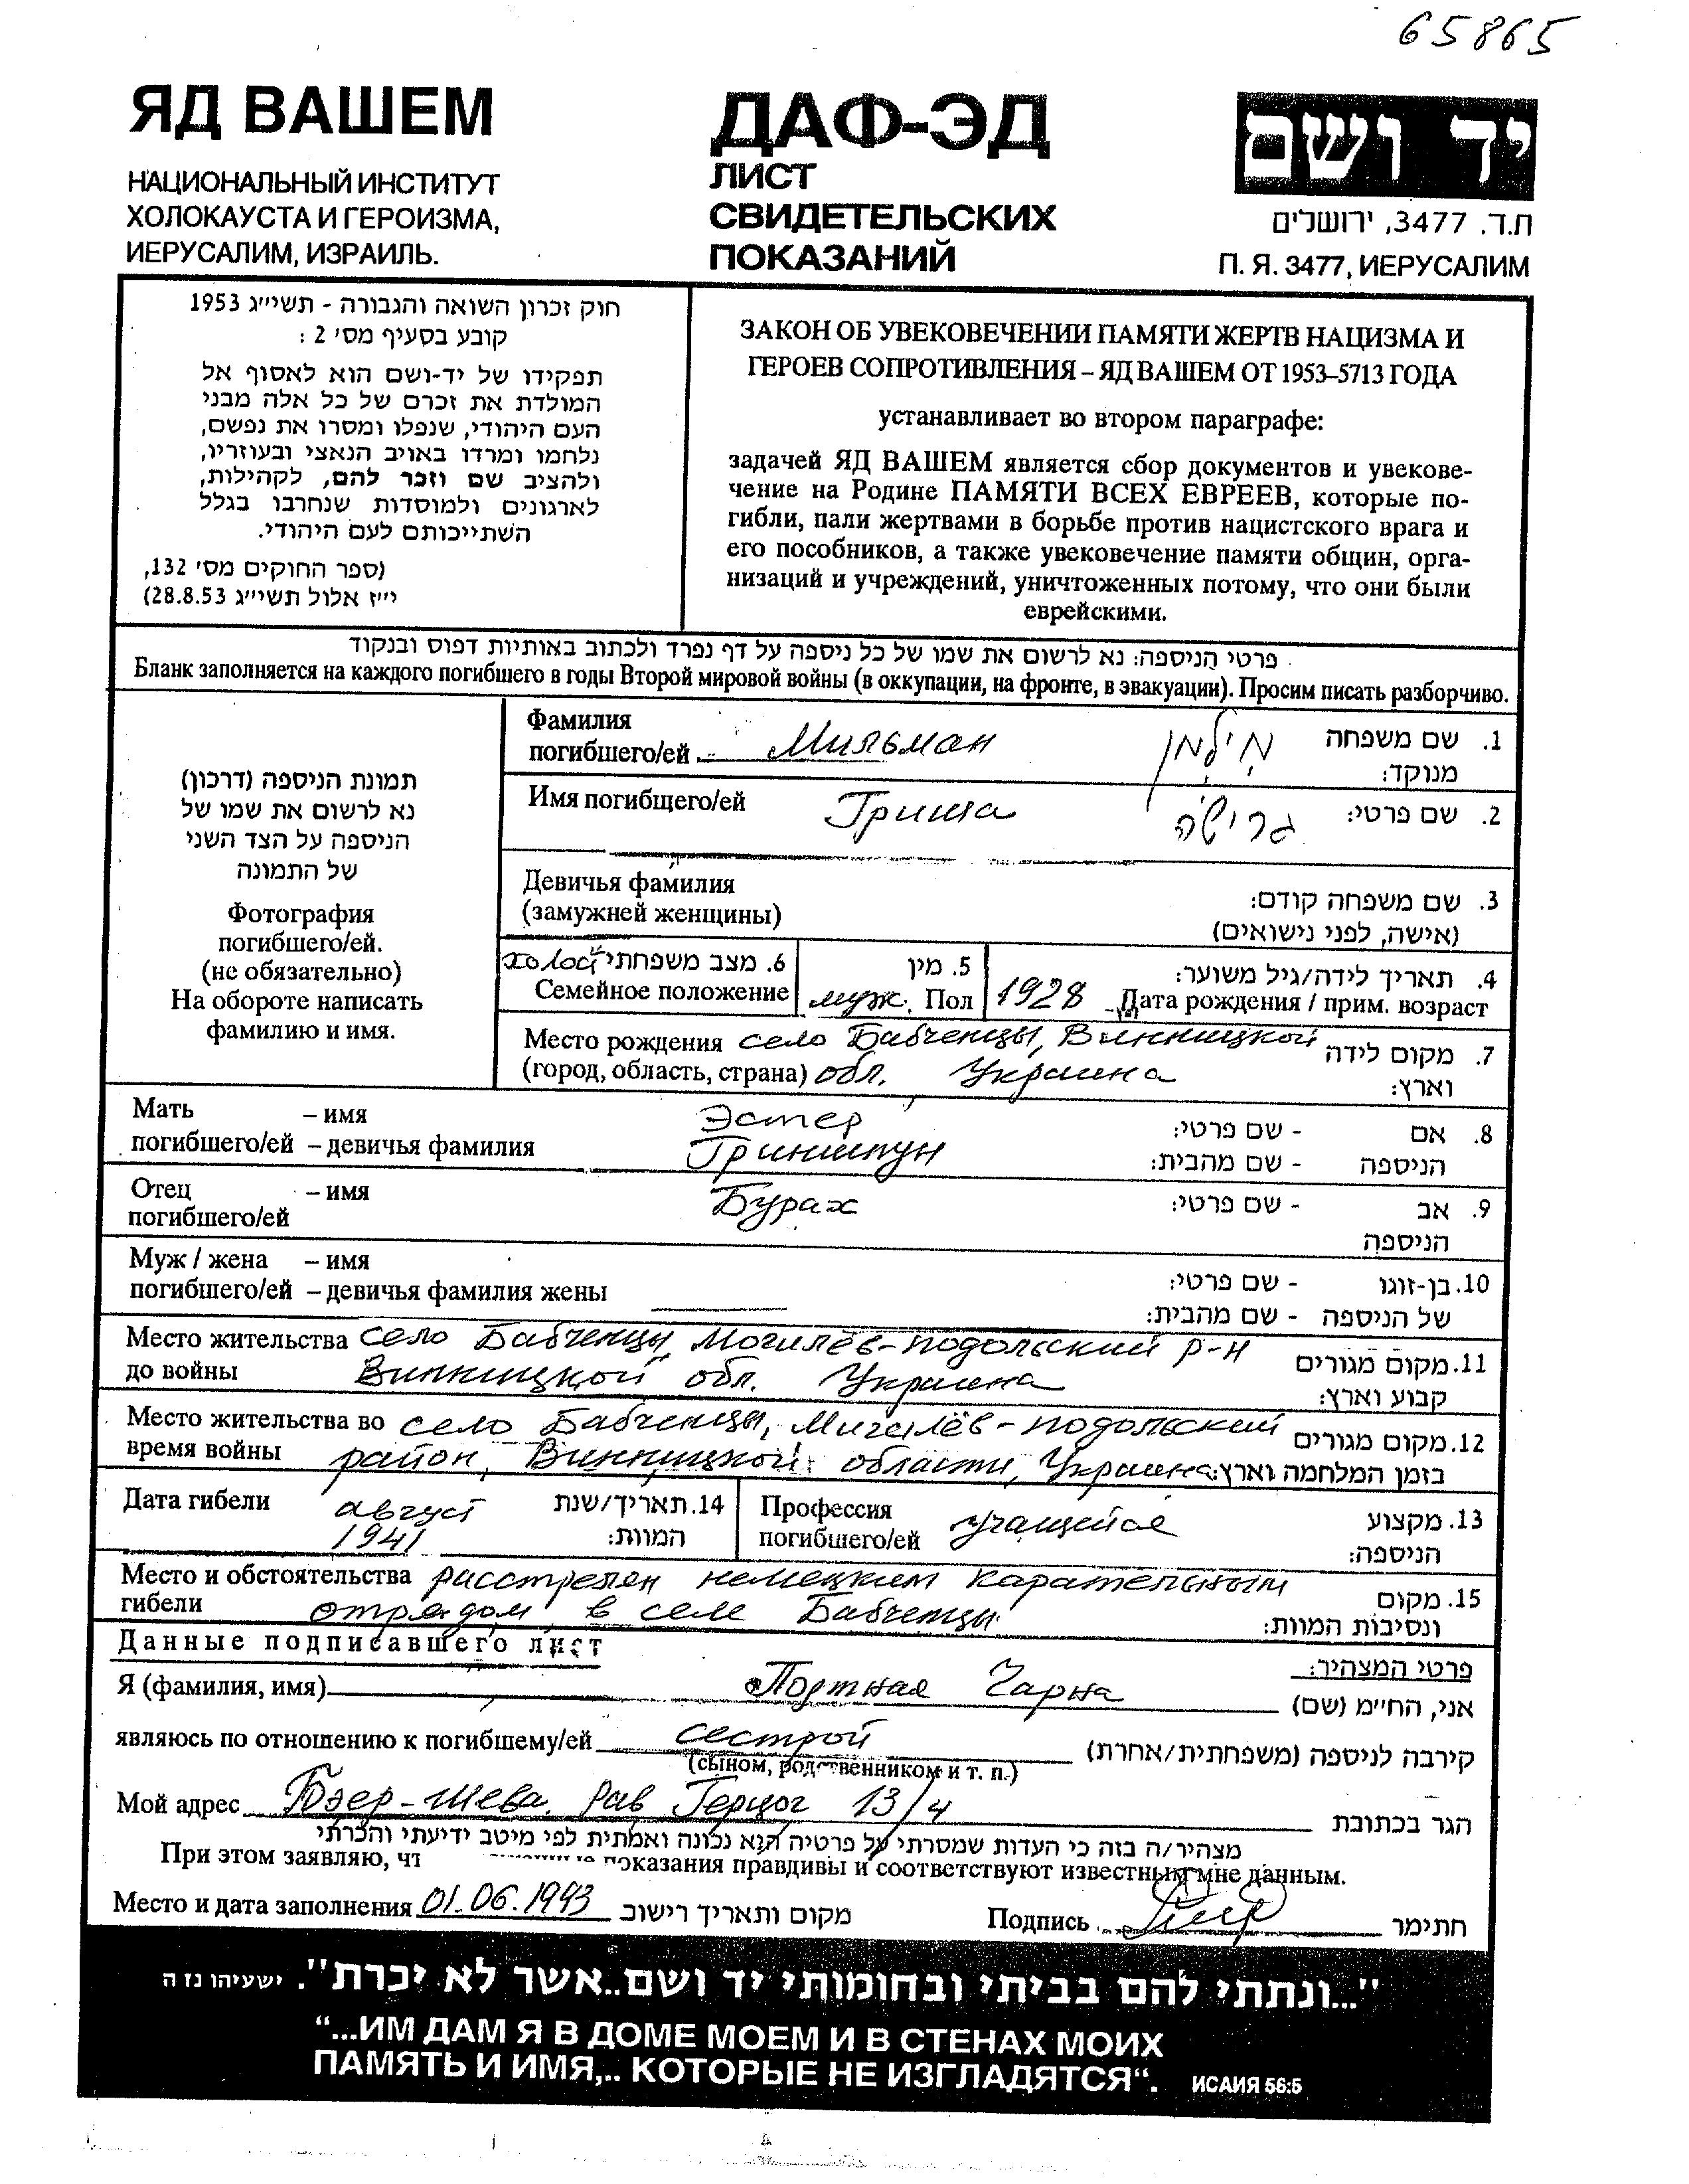 65865
ЯД ВАШЕМ
НАЦИОНАЛЬНЫЙ ИНСТИТУТ
ХОЛОКАУСТА И ГЕРОИЗМА,
ИЕРУСАЛИМ, ИЗРАИЛЬ.
ДАФ-ЭД
ЛИСТ
СВИДЕТЕЛЬСКИХ
ПОКАЗАНИЙ
יד ושם
ת.ד. 3477, ירושלים
П. Я. 3477, ИЕРУСАЛИМ
חוק זכרון השואה והגבורה - תשי״ג 1953
קובע בסעיף מס׳ 2 :
תפקידו של יד-ושם הוא לאסוף אל
המולדת את זכרם של כל אלה מבני
העם היהודי, שנפלו ומסרו את נפשם,
נלחמו ומרדו באויב הנאצי ובעוזריו,
ולהציב שם וזכר להם, לקהילות,
לארגונים ולמוסדות שנחרבו בגלל
השתייכותם לעם היהודי.
(ספר החוקים מס׳ 132,
י״ז אלול תשי״ג 28.8.53)
ЗАКОН ОБ УВЕКОВЕЧЕНИИ ПАМЯТИ ЖЕРТВ НАЦИЗМА И
ГЕРОЕВ СОПРОТИВЛЕНИЯ – ЯД ВАШЕМ ОТ 1953–5713 ГОДА
устанавливает во втором параграфе:
задачей ЯД ВАШЕМ является сбор документов и увекове-
чение на Родине ПАМЯТИ ВСЕХ ЕВРЕЕВ, которые по-
гибли, пали жертвами в борьбе против нацистского врага и
его пособников, а также увековечение памяти общин, орга-
низаций и учреждений, уничтоженных потому, что они были
еврейскими.
פרטי הניספה: נא לרשום את שמו של כל ניספה על דף נפרד ולכתוב באותיות דפוס ובנקוד
Бланк заполняется на каждого погибшего в годы Второй мировой войны (в оккупации, на фронте, в эвакуации). Просим писать разборчиво.
תמונת הניספה (דרכון)
נא לרשום את שמו של
הניספה על הצד השני
של התמונה
Фотография
погибшего/ей.
(не обязательно)
На обороте написать
фамилию и имя.
Фамилия
погибшего/ей Мильман מילמן 1. שם משפחה
מנוקד:
Имя погибщего/ей Гриша גרישה 2. שם פרטי:
Девичья фамилия
(замужней женщины)
3. שם משפחה קודם:
(אישה, לפני נישואים)
холост 6. מצב משפחתי
Семейное положение
5. מין
муж. Пол
4. תאריך לידה/גיל משוער:
1928 Дата рождения / прим. возраст
Место рождения село Бабченцы, Винницкой 7. מקום לידה
(город, область, страна) обл. Украина וארץ:
Мать – имя Эстер 8. אם - שם פרטי:
погибшего/ей – девичья фамилия Гриншпун הניספה - שם מהבית:
Отец – имя Бурах 9. אב - שם פרטי:
погибшего/ей הניספה
Муж / жена – имя 10. בן-זוגו - שם פרטי:
погибшего/ей – девичья фамилия жены של הניספה - שם מהבית:
Место жительства село Бабченцы Могилёв-подольский р-н 11. מקום מגורים
до войны Винницкой обл. Украина קבוע וארץ:
Место жительства во село Бабченцы, Могилёв-подольский 12. מקום מגורים
время войны район, Винницкой области, Украина בזמן המלחמה וארץ:
Дата гибели август 1941 14. תאריך/שנת
המוות:
Профессия
погибшего/ей учащийся 13. מקצוע
הניספה:
Место и обстоятельства расстрелян немецким карательным 15. מקום
гибели отрядом в селе Бабченцы ונסיבות המוות:
Данные подписавшего лист פרטי המצהיר:
Я (фамилия, имя) Портная Чарна אני, החי״מ (שם)
являюсь по отношению к погибшему/ей сестрой קירבה לניספה (משפחתית/אחרת)
(сыном, родственником и т. п.)
Мой адрес Бэер-шева. Рав Герцог 13/4 הגר בכתובת
מצהיר/ה בזה כי העדות שמסרתי על פרטיה הנא נכונה ואמתית לפי מיטב ידיעתי והכרתי
При этом заявляю, показания правдивы и соответствуют известным мне данным.
Место и дата заполнения 01.06.1993 מקום ותאריך רישוב Подпись חתימר
"...ונתתי להם בביתי ובחומותי יד ושם..אשר לא יכרת". ישעיהו נו ה
“...ИМ ДАМ Я В ДОМЕ МОЕМ И В СТЕНАХ МОИХ
ПАМЯТЬ И ИМЯ,.. КОТОРЫЕ НЕ ИЗГЛАДЯТСЯ“. ИСАИЯ 56:5